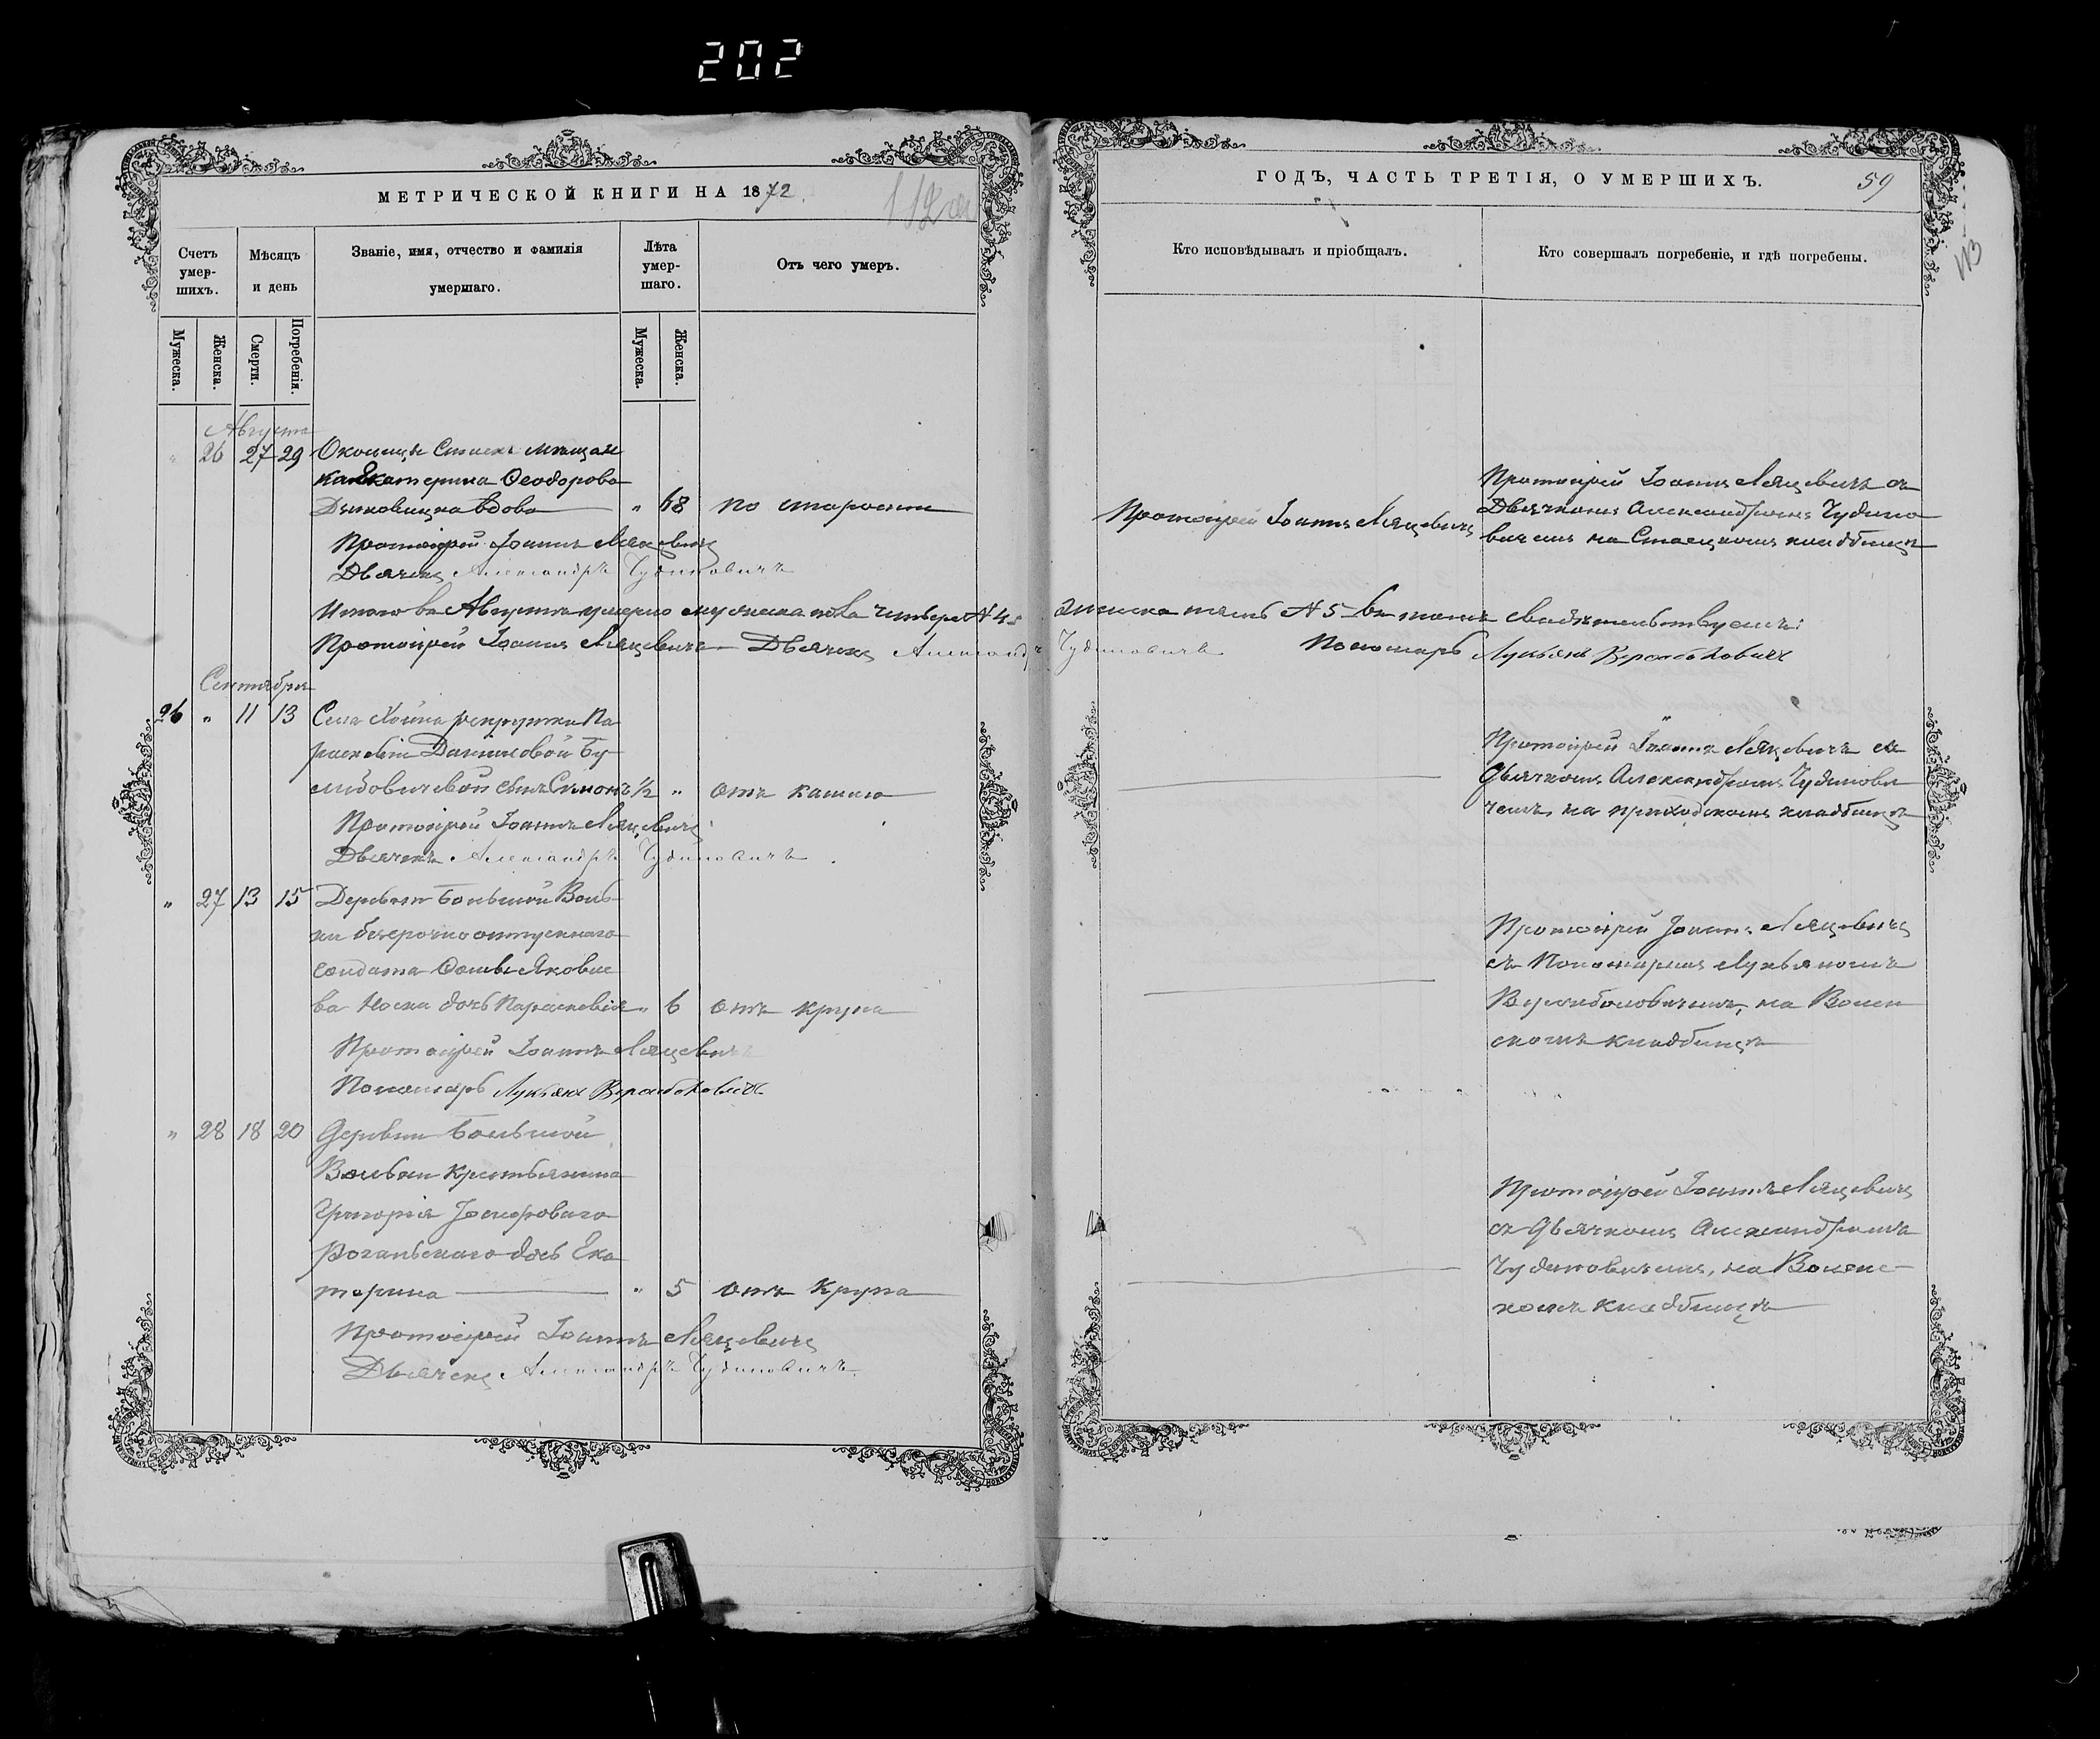 202
МЕТРИЧЕСКОЙ КНИГИ НА 1872.
Счетъ умер-шихъ.
Мѣсяцъ и день
Званіе, имя, отчество и фамилія умершаго.
Лѣта умер-шаго.
Отъ чего умеръ.
Мужеска.
Женска.
Смерти.
Погребенія.
Мужеска.
Женска.
Августа
" 26 27 29
ка Екатерина Ѳеодорова
вдова " 68 по старости
Протоіерей Іоаннъ Ляцевичъ
Дьячекъ Александръ Чудиновичъ
Итого въ Августѣ умерло мужеска пола четыре № 4
Протоіерей Іоаннъ Ляцевичъ Дьячекъ Александръ
Сентября
26 " 11 13 Села
раскевіи Данииловой Бу
сынъ Симонъ ½ " отъ кашлю
Протоіерей Іоаннъ Ляцевичъ
Дьячекъ Александръ Чудиновичъ
" 27 13 15 Деревни Большой Воль
ки безсрочноотпускнаго
солдата Ѳомы Яковле
ва Носка дочь Параскевія " 6 отъ крупа
Протоіерей Іоаннъ Ляцевичъ
Пономарь Лукьянъ
" 28 18 20 Деревни Большой
Вольки крестьянина
Григорія
дочь Ека
терина " 5 отъ крупа
Протоіерей Іоаннъ Ляцевичъ
Дьячекъ Александръ Чудиновичъ
ГОДЪ, ЧАСТЬ ТРЕТІЯ, О УМЕРШИХЪ.
59
113
Кто исповѣдывалъ и пріобщалъ.
Кто совершалъ погребеніе, и гдѣ погребены.
Протоіерей Іоаннъ Ляцевичъ
Протоіерей Іоаннъ Ляцевичъ съ
Дьячкомъ Александромъ Чудино
вичемъ на кладбищѣ
женска пять № 5 въ томъ свидѣтельствуемъ:
Чудиновичъ Пономарь Лукьянъ
Протоіерей Іоаннъ Ляцевичъ съ
Дьячкомъ Александромъ Чудинови
чемъ, на приходскомъ кладбищѣ
Протоіерей Іоаннъ Ляцевичъ
съ Пономаремъ Лукьяномъ
на Волен
скомъ кладбищѣ
Протоіерей Іоаннъ Ляцевичъ
съ Дьячкомъ Александромъ
Чудиновичемъ, на Воленс
комъ кладбищѣ